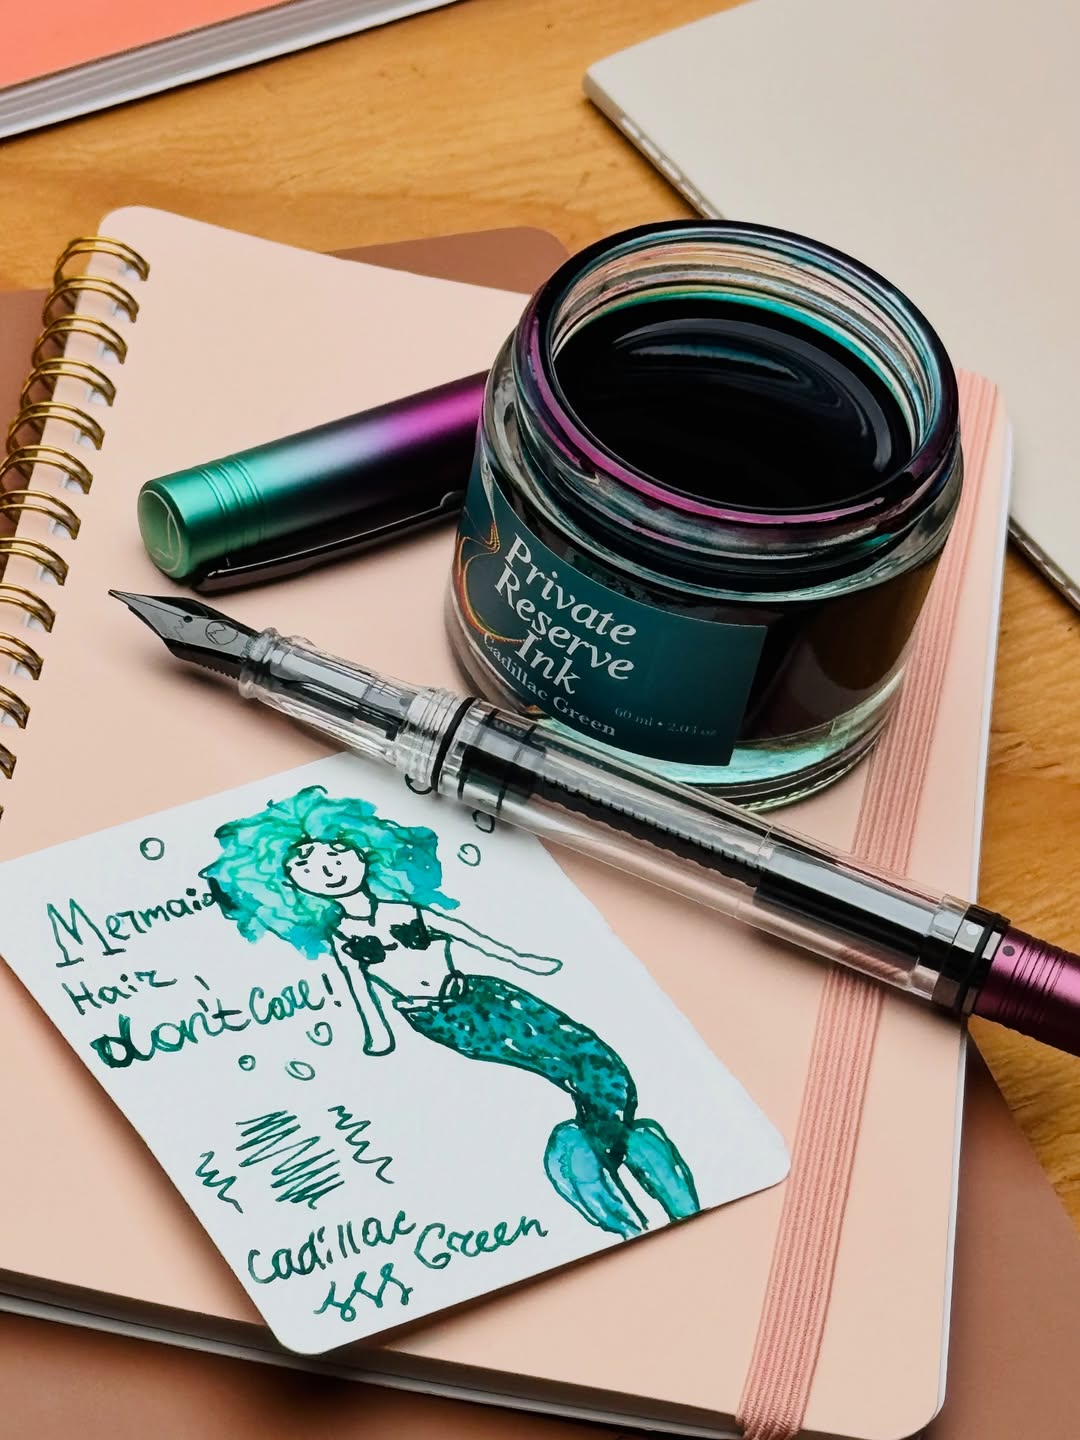 Private
Reserve
Ink
Cadillac Green
60 ml • 2.03 oz
Mermaid
Hair
don't Care!
Cadillac Green